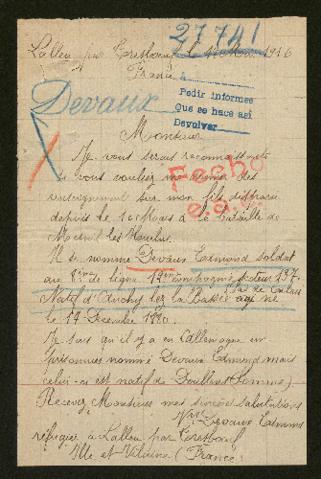 27741
Lalleu par 1916
France
Pedir informes
Que se hace así
Devolver
Devaux
Monsieur
Je vous serais reconnaissante
si vous vouliez me donner des
renseignement sur mon fils disparu
depuis le Mars à la bataille de
Mesnil les Hurlus.
Fecho
Il se nomme Devaux Edmond soldat
au de ligne Compagnie
Natif d'Auchy lez la Bassée Pas de Calais né
le 17 Decembre
Je sais qu'il y a en Allemagne un
prisonnier nommé Devaux Edmond mais
celui-ci est natif de Doullens (Somme)
Recevez Monsieur mes sincères salutations
Devaux Edmond
réfugiée à Lalleu par
Ille et Vilaine (France)